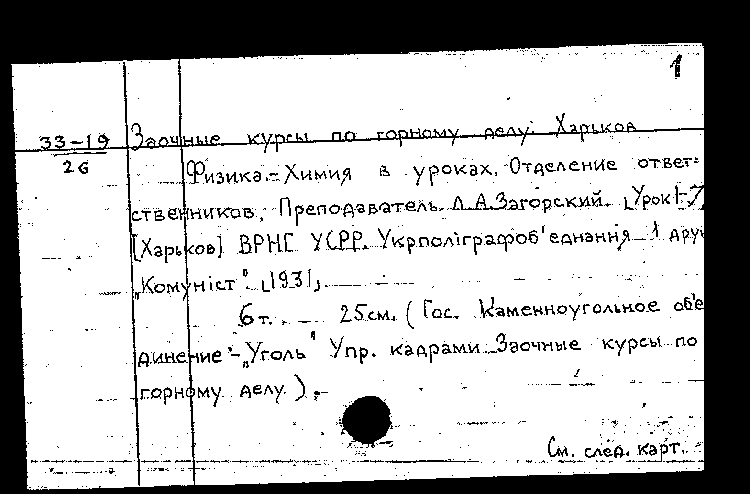 1
33-19
26
Заочные курсы по горному делу. Харьков
Физика.-Химия в уроках. Отделение ответ-
ственников, Преподаватель Л.А.Загорский. [Урок 1-7]
[Харьков] ВРНГ УСРР. Укрполіграфоб'еднання 1 дру
„Комуніст" [1931]
6т. 25см. (Гос. Каменноугольное объе
динение - „Уголь" Упр. кадрами Заочные курсы по
горному делу.).-
См. след. карт.